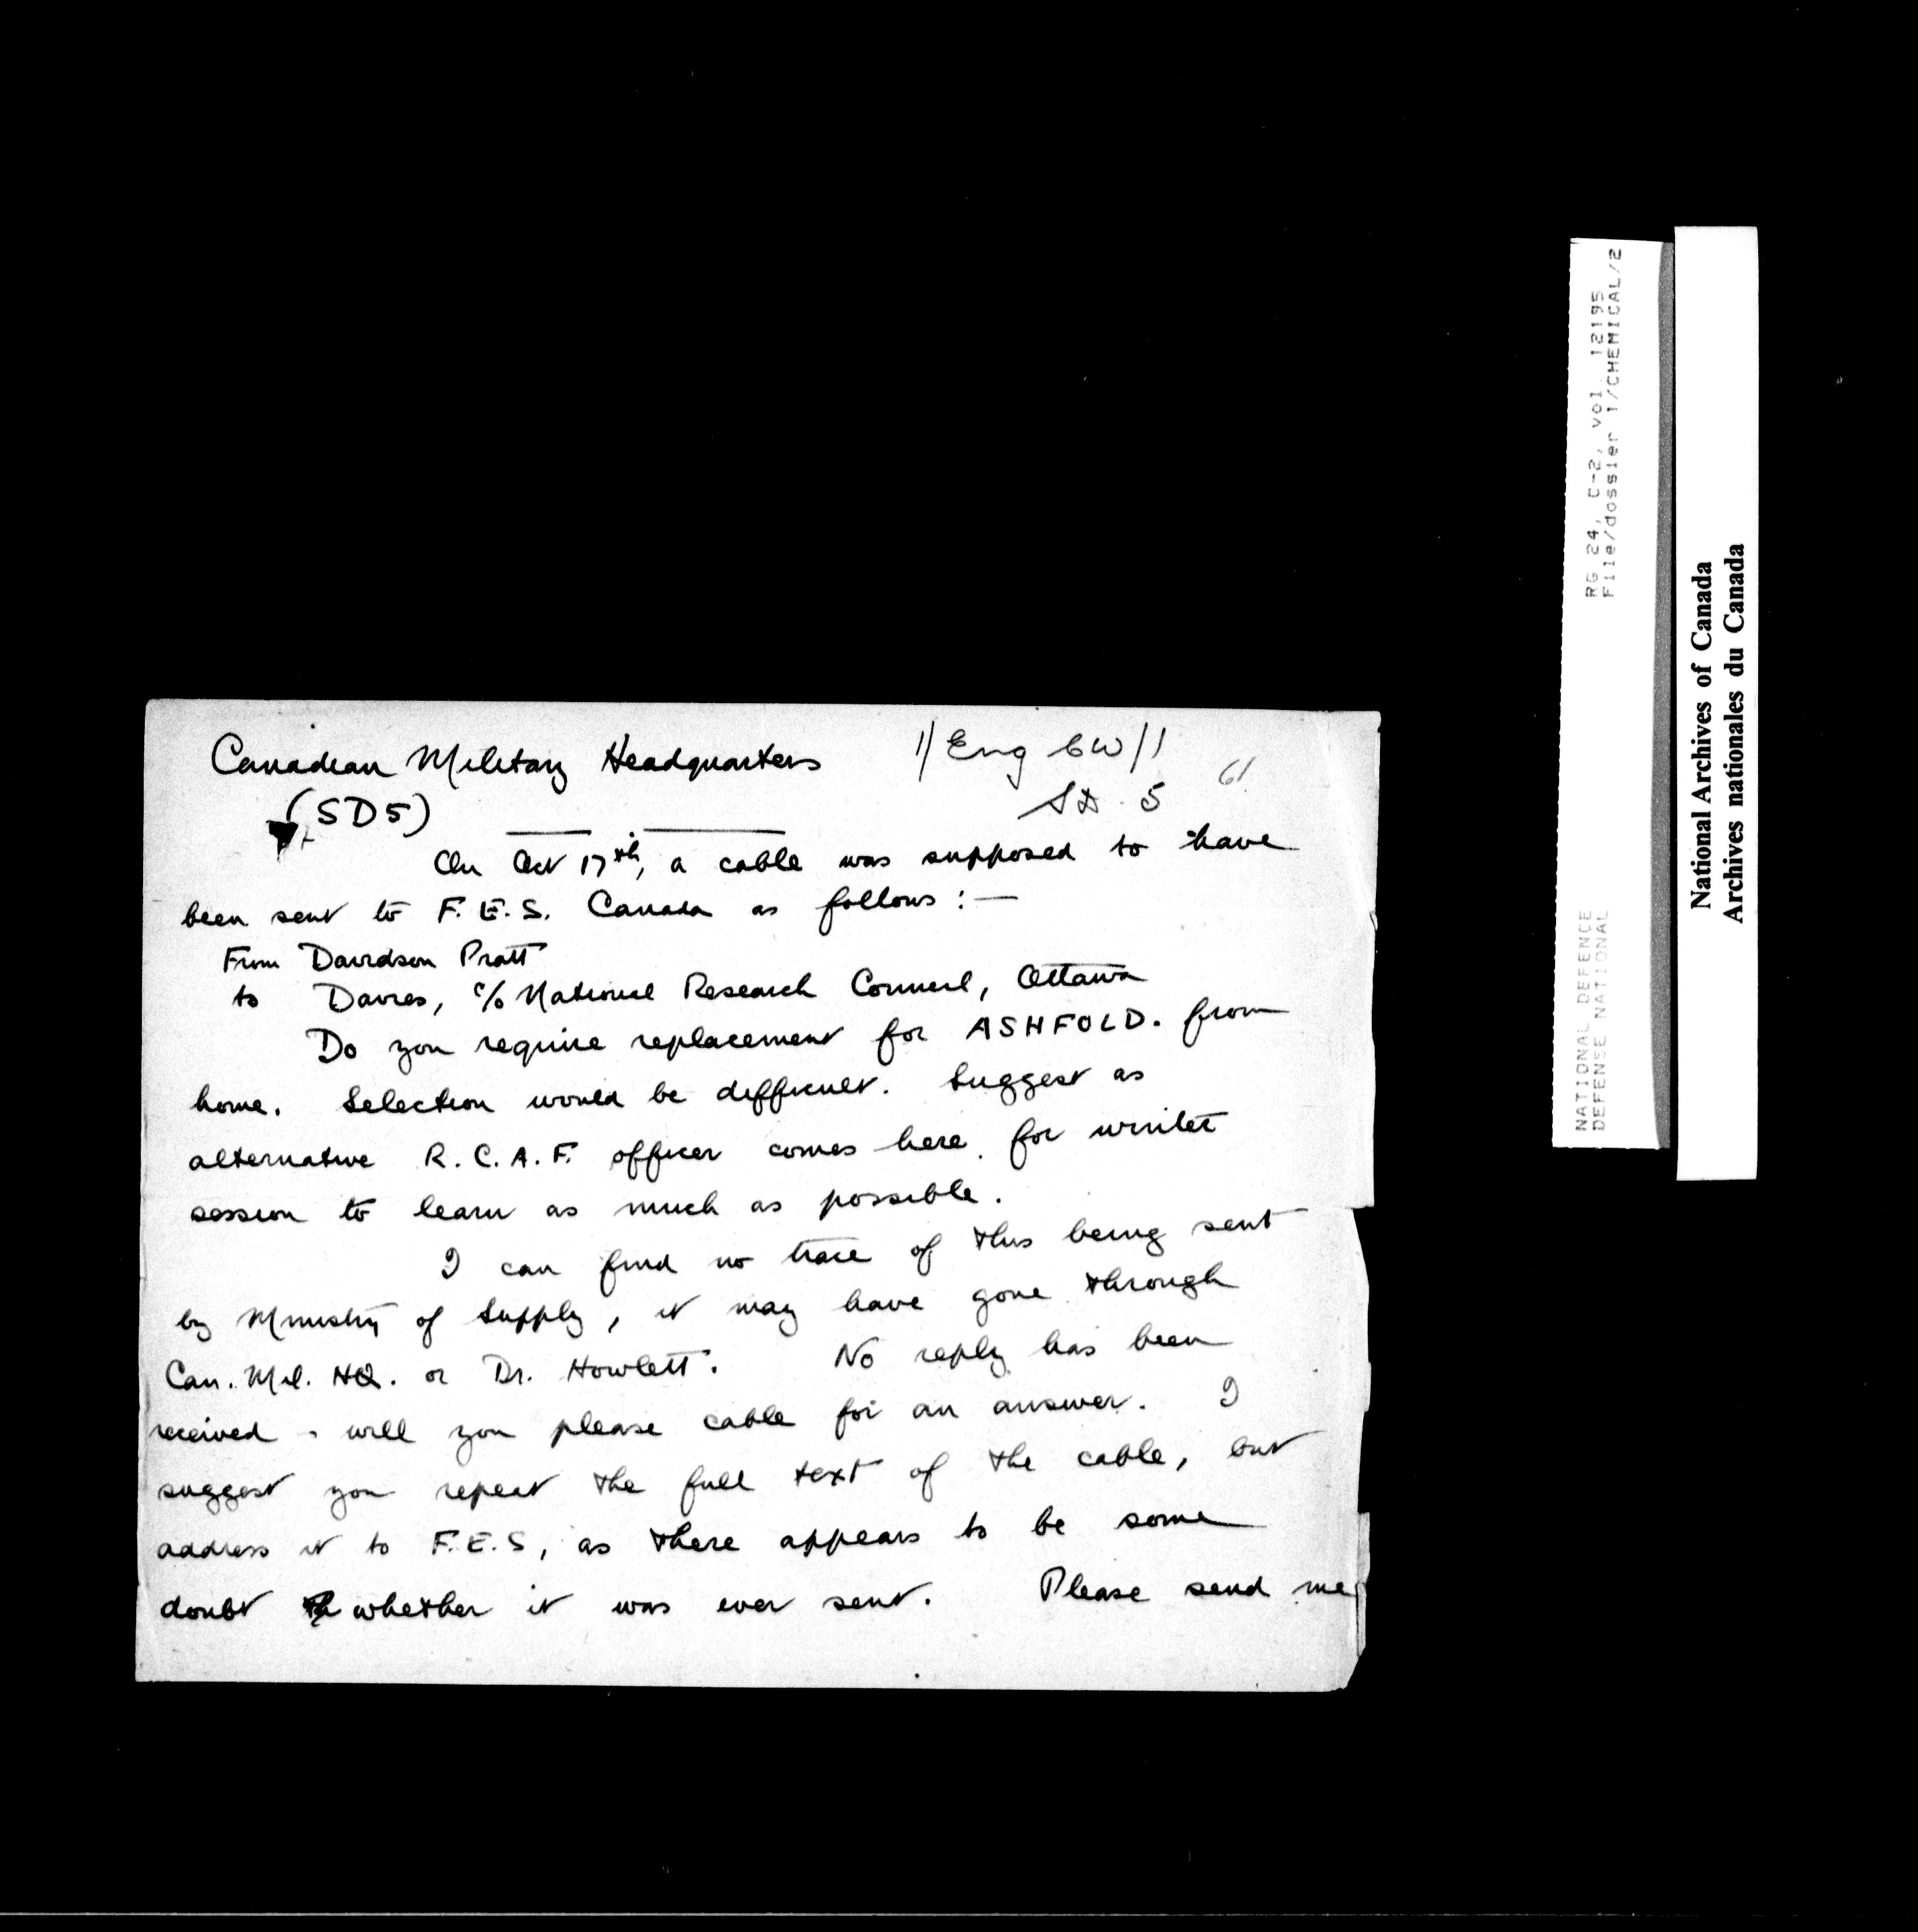 Canadian Military Headquarters
1/Eng CW/1
61
(SD5)
SD 5
On Oct 17th, a cable was supposed to have
been sent to F.E.S. Canada as follows :—
From Davidson Pratt
to Davies, c/o National Research Council, Ottawa
Do you require replacement for ASHFOLD. from
home. Selection would be difficult. Suggest as
alternative R.C.A.F. officer comes here for winter
session to learn as much as possible.
I can find no trace of this being sent
by Ministry of Supply, it may have gone through
Can. Mil. HQ. or Dr. Howlett. No reply has been
received - will you please cable for an answer. I
suggest you repeat the full text of the cable, but
address it to F.E.S, as there appears to be some
doubt whether it was ever sent. Please send me
RG 24, C-2, vol. 12195
File/dossier 1/CHEMICAL/2
NATIONAL DEFENCE
DEFENSE NATIONAL
National Archives of Canada
Archives nationales du Canada